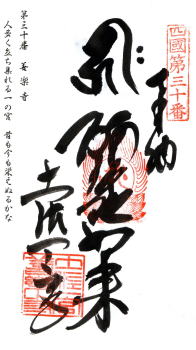 四國第三十番
奉納
阿弥陀如来
土佐一ノ宮
第三十番 善楽寺
人多く立ち集れる一の宮 昔も今も栄えぬるかな